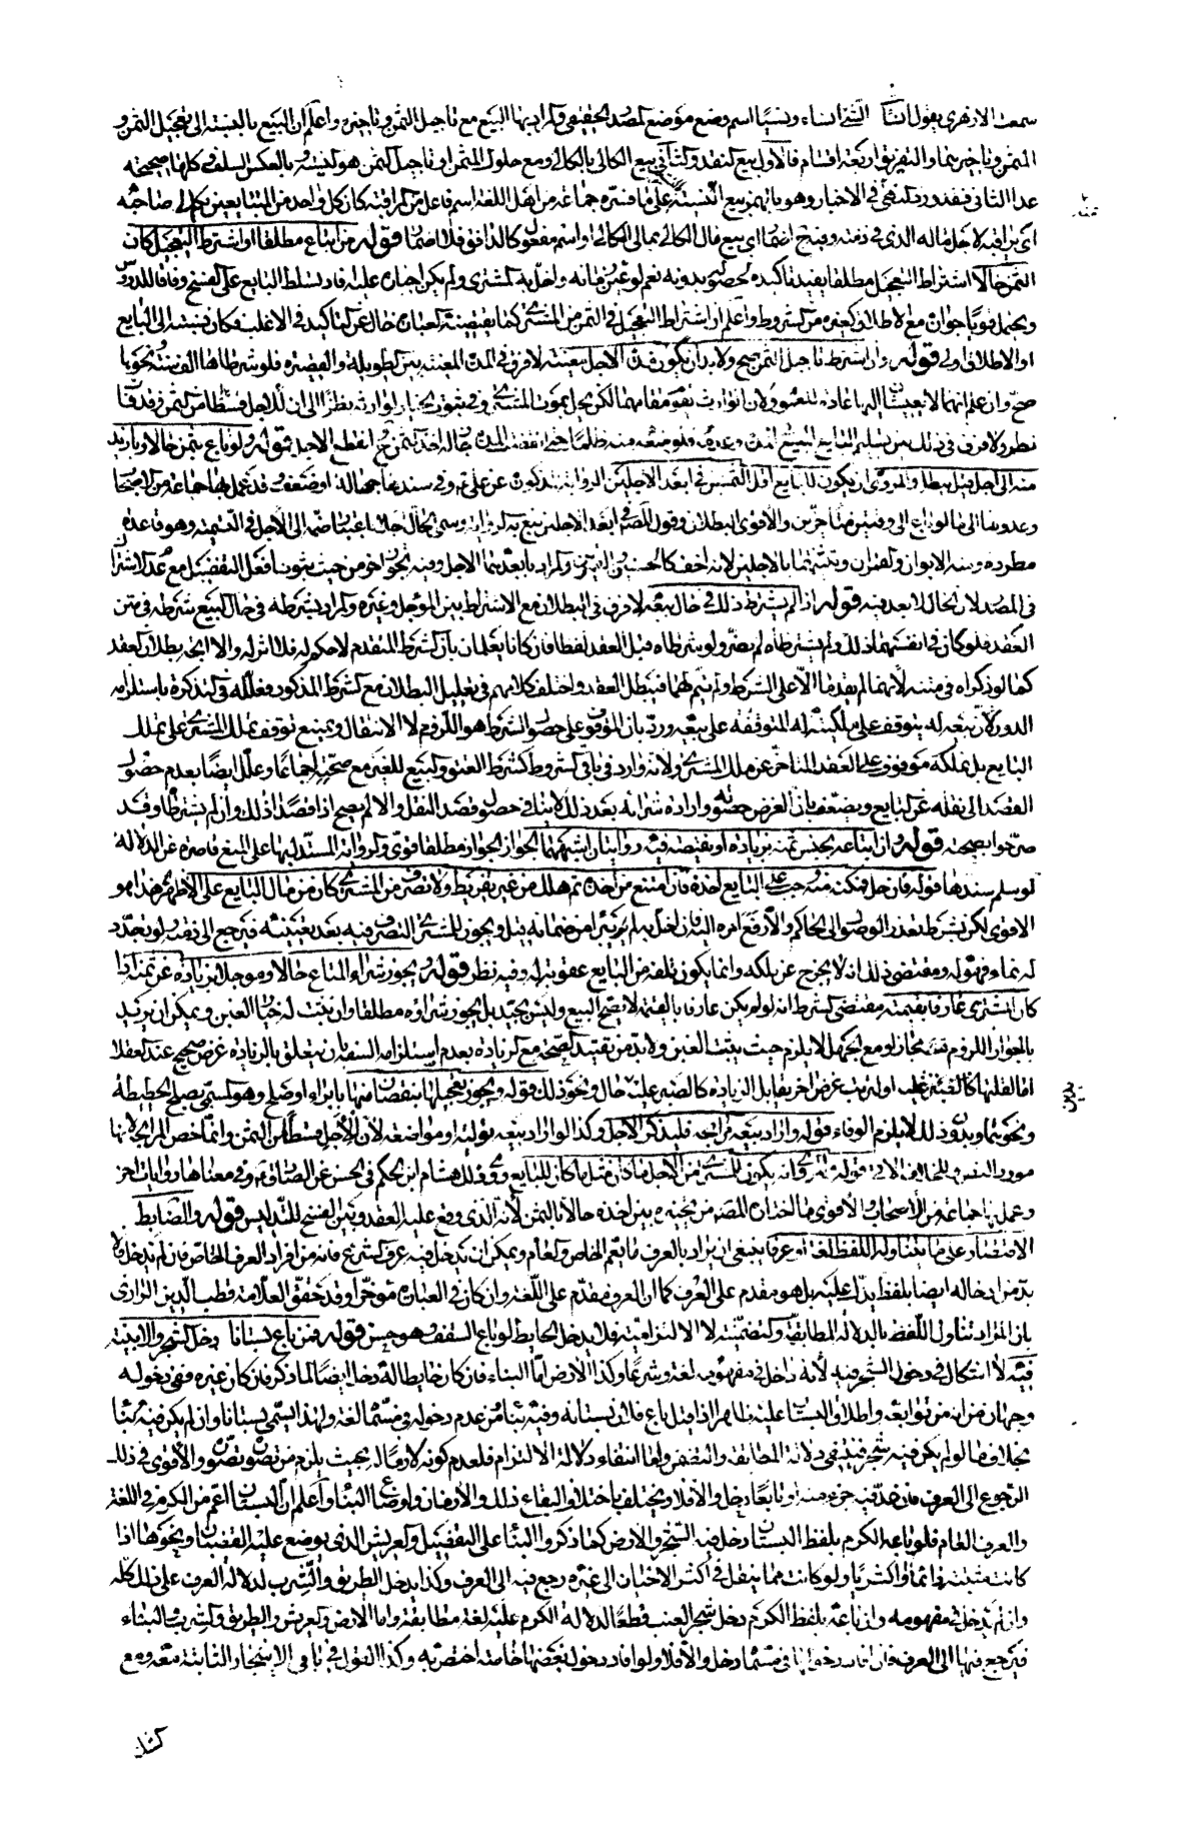 سمعت الازهرى يقول انسأت الشئ انساء ونسيئا اسم وضع موضع المصدر الحقيقى والمراد بها البيع مع تاجيل الثمن وتاخيره واعلم ان البيع بالنسبة الى تعجيل الثمن و
المثمن وتاخيرهما والتفريق اربعة اقسام فالاول بيع النقد والثانى بيع الكالى بالكالى ومع حلول المثمن وتاجيل الثمن هو النسيئة وبالعكس السلف وكلها صحيحة
عدا الثانى فقد ورد النهى عنه فى الاخبار وهو بالهمز بيع النسيئة بالنسيئة على ما فسره جماعة من اهل اللغة اسم فاعل من المراقبة كان كل واحد من المتبايعين يكلأ صاحبه
اى يراقبه لاجل ماله الذى فى ذمته وفيه ح اضمار اى بيع مال الكالى بمال الكالى او اسم مفعول كالدافق فلا اضمار قوله من ابتاع مطلقا او اشترط التعجيل كان
الثمن حالا اشتراط التعجيل مطلقا يفيد تاكيده لحصوله بدونه نعم لو عين زمانه واخل به المشترى ولم يكن اجباره عليه افاد تسلط البايع على الفسخ وفاقا للدروس
ويحتمل قويا جوازه مع الاطلاق كغيره من الشروط واعلم ان اشتراط التعجيل فى الثمن من المشترى كما يقتضيه العبارة خال عن التاكيد فى الاغلب فكان نسبته الى البايع
او الاطلاق اولى قوله وان اشترط تاجيل الثمن صح ولا بد ان يكون مدة الاجل معينة لا فرق فى المدة المعينة بين الطويلة والقصيرة فلو شرطاها الف سنة ونحوها
صح وان علم انهما لا يعيشان اليها عادة للعموم ولان الوارث يقوم مقامهما لكن يحل بموت المشترى وفى ثبوت الخيار لوارثه نظرا الى ان للاجل قسطا من الثمن وقد فات
نظر ولا فرق فى ذلك بين تسليم البايع المبيع فى المدة وعدمه فلو منعه منه ظلما حتى انقضت المدة جاز له اخذ الثمن ح لانقطع الاجل قوله ولو باع بثمن حالا وبازيد
منه الى اجل قيل يبطل والمروى ان يكون للبايع اقل الثمنين فى ابعد الاجلين الرواية مذكورة عن على ع وفى سندها جهالة او ضعف وقد عمل بها جماعة من الاصحاب
وعدوها الى ما لو باع الى وقتين متاخرين والاقوى البطلان وقول المصنف فى ابعد الاجلين تبع به الرواية وسمى الحال اجلا باعتبار ضمه الى الاجل فى التثنية وهو قاعدة
مطردة ومنه الابوان والقمران وتثنيتهما بالاجلين لانه اخف كالحسنين والعمرين والمراد بابعدهما الاجل وفيه تجوز اخر من حيث ثبوت افعل التفضيل مع عدم الاشتراك
فى المصدر لان الحال لا بعد فيه قوله اذا لم يشترط ذلك فى حال بيعه لا فرق فى البطلان مع الاشتراط بين المؤجل وغيره والمراد بشرطه فى حال البيع شرطه فى متن
العقد فلو كان فى انفسهما ذلك ولم يشترطاه لم يضر ولو شرطاه قبل العقد لفظا فان كانا يعلمان بان الشرط المتقدم لا حكم له فلا اثر له والا اتجه بطلان العقد
كما لو ذكراه فى متنه لانهما لم يقدما الا على الشرط ولم يتم لهما فيبطل العقد واختلف كلامهم فى تعليل البطلان مع الشرط المذكور فعلله فى التذكرة باستلزامه
الدور لان بيعه له يتوقف على ملكيته له المتوقفة على بيعه ورد بان الموقوف على حصول الشرط هو اللزوم لا الانتقال ويمنع توقف تملك المشترى على تملك
البايع بل تملكه موقوف على العقد المتاخر عن ملك المشترى ولانه وارد فى باقى الشروط كشرط العتق والبيع للغير مع صحته اجماعا وعلل ايضا بعدم حصول
القصد الى نقله عن البايع ويضعف بان الغرض حصوله وارادة شرائه بعد ذلك لا ينافى حصول قصد النقل والا لم يصح اذا قصدا ذلك وان لم يشترطاه وقد
صرحوا بصحته قوله وان ابتاعه بجنس ثمنه بزيادة او نقيصة فيه روايتان اشبههما الجواز الجواز مطلقا قوى والرواية المستدل بها على المنع قاصرة عن الدلالة
لو سلم سندها قوله فان حل فمكنه منه وجب على البايع اخذه فان امتنع من اخذه ثم هلك من غير تفريط ولا تصرف من المشترى كان من مال البايع على الاظهر هذا هو
الاقوى لكن يشترط تعذر الوصول الى الحاكم والا رفع امره اليه فان اخل به لم يبرء من ضمانه بتلفه ويجوز للمشترى التصرف فيه بعد تعيينه فيرجع الى ذمته ولو تجدد
له نماء فهو له ومقتضى ذلك انه لا يخرج عن ملكه وانما يكون تلفه من البايع عقوبة له وفيه نظر قوله ويجوز شراء المتاع حالا ومؤجلا بزيادة عن ثمنه اذا
كان المشترى عارفا بقيمته مقتضى الشرط انه لو لم يكن عارفا بالقيمة لا يصح البيع وليس بجيد بل يجوز شراؤه مطلقا وان ثبت له خيار الغبن ويمكن ان يريد
بالجواز اللزوم فى مجاز او مع الجهل لا يلزم حيث يثبت الغبن ولا بد من تقييد الصحة مع الزيادة بعدم استلزامه السفه بان يتعلق بالزيادة غرض صحيح عند العقلاء
قوله ويجوز تعجيلها بنقصان منها بابراء او صلح وهو المسمى بصلح الحطيطة
ونحوهما وبدون ذلك لا يلزم الوفاء قوله واراد بيعه مرابحة فليذكر الاجل وكذا لو اراد بيعه تولية او مواضعة لان للاجل قسطا من الثمن وانما خص المرابحة لانها
مورد النص قوله كان للمشترى من الاجل ما كان للبايع وهو رواية هشام بن الحكم فى الحسن عن الصادق ع وفى معناها روايات اخر
وعمل بها جماعة من الاصحاب والاقوى ما اختاره المصنف من تخييره بين اخذه حالا بالثمن لانه الذى وقع عليه العقد وبين الفسخ للتدليس قوله والضابط
الاقتصار على ما يتناوله اللفظ لغة او عرفا ينبغى ان يراد بالعرف ما يعم الخاص والعام ويمكن ان يدخل فيه عرف الشرع فانه من افراد العرف الخاص فان لم يدخل فلا
بد من ادخاله ايضا بلفظ يدل عليه بل هو مقدم على العرف كما ان العرف مقدم على اللغة وان كان فى العبارة مؤخرا وقد حقق العلامة قطب الدين الرازى
بان المراد تناول اللفظ بالدلالة المطابقية والتضمنية لا الالتزامية فلا يدخل الحايط لو باع السقف وهو حسن قوله فمن باع بستانا دخل الشجر والابنية
فيه لا اشكال فى دخول الشجر فيه لانه داخل فى مفهومه لغة وشرعا وكذا الارض اما البناء فان كان حايطا له دخل ايضا لما ذكر وان كان غيره ففى دخوله
وجهان من انه من توابعه واطلاق البستان عليه ظاهرا اذا قيل باع فلان بستانه وفيه بناء ومن عدم دخوله فى مسماه لغة ولهذا يسمى بستانا وان لم يكن فيه بناء
بخلاف ما لو لم يكن فيه شجر فينتفى دلالة المطابقة والتضمن واما انتفاء دلالة الالتزام فلعدم كونه لازما له بحيث يلزم من تصوره تصوره والاقوى فى ذلك
الرجوع الى العرف فان عد فيه جزء منه او تابعا دخل والا فلا ويختلف باختلاف البقاع ذلك والازمان واوضاع البناء واعلم ان البستان اعم من الكرم فى اللغة
والعرف العام فلو باعه الكرم بلفظ البستان دخل فيه الشجر والارض كما ذكر والبناء على التفصيل والعريش الذى يوضع عليه القضبان ونحوها اذا
كانت مثبتة دائما او اكثريا ولو كانت مما ينقل فى اكثر الاحيان الى غيره رجع فيه الى العرف وكذا يدخل الطريق والشرب لدلالة العرف على ذلك كله
وان لم يدخل فى مفهومه وان باعه بلفظ الكرم دخل شجر العنب قطعا لدلالة الكرم عليه لغة مطابقة واما الارض والعريش والطريق والشرب والبناء
فيرجع فيها الى العرف فان افاد دخولها فى مسماه دخل والا فلا ولو افاد دخول بعضها خاصة اختص به وكذا القول فى باقى الاشجار الثابتة معه ومع